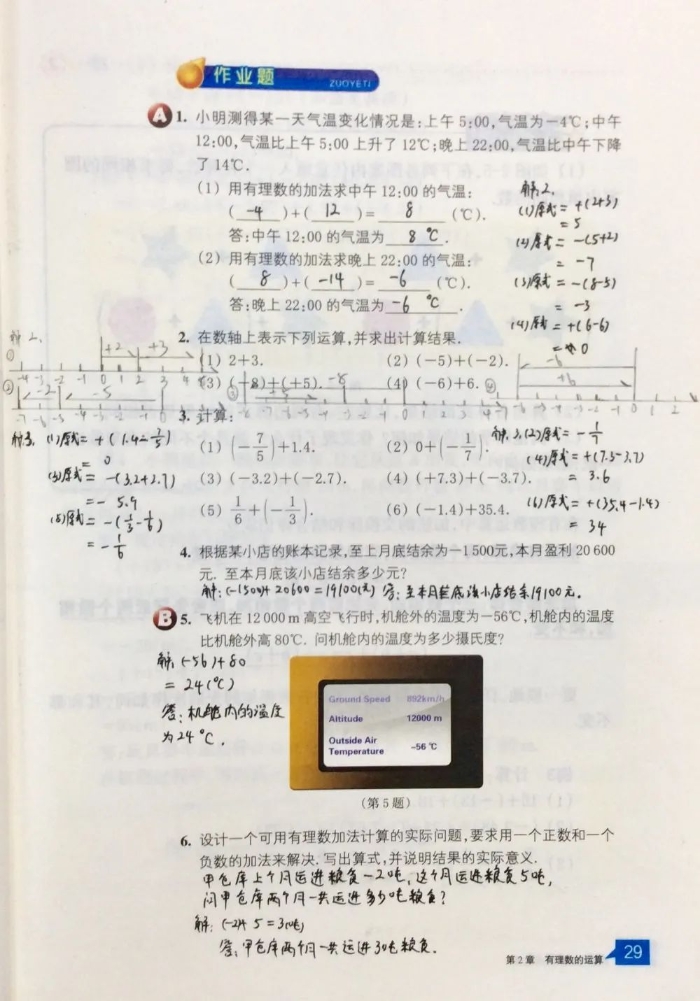 作业题
ZUOYETI
A 1. 小明测得某一天气温变化情况是:上午5:00,气温为-4℃;中午
12:00,气温比上午5:00上升了12℃;晚上22:00,气温比中午下降
了14℃.
(1) 用有理数的加法求中午12:00的气温:
( -4 )+( 12 )= 8 (℃).
答:中午12:00的气温为 8℃ .
(2) 用有理数的加法求晚上22:00的气温:
( 8 )+( -14 )= -6 (℃).
答:晚上22:00的气温为 -6℃ .
解2.
(1)原式= +(2+3)
= 5
(2)原式= -(5+2)
= -7
(3)原式= -(8-5)
= -3
(4)原式= +(6-6)
= 0
2. 在数轴上表示下列运算,并求出计算结果.
(1) 2+3. (2) (-5)+(-2).
(3) (-8)+(+5). (4) (-6)+6.
解2.
① +2 +3
-4 -3 -2 -1 0 1 2 3 4
② -2 -5
-7 -6 -5 -4 -3 -2 -1 0
③ +5 -8
④ -6
+6
3. 计算:
(1) (-7/5)+1.4. (2) 0+(-1/7).
(3) (-3.2)+(-2.7). (4) (+7.3)+(-3.7).
(5) 1/6+(-1/3). (6) (-1.4)+35.4.
解3. (1)原式= +(1.4-7/5)
= 0
(3)原式= -(3.2+2.7)
= -5.9
(5)原式= -(1/3-1/6)
= -1/6
解.3.(2)原式= -1/7
(4)原式= +(7.3-3.7)
= 3.6
(6)原式= +(35.4-1.4)
= 34
4. 根据某小店的账本记录,至上月底结余为-1500元,本月盈利20600
元. 至本月底该小店结余多少元?
解: (-1500)+20600=19100(元) 答: 至本月底该小店结余19100元.
B 5. 飞机在12000 m高空飞行时,机舱外的温度为-56℃,机舱内的温度
比机舱外高80℃. 问机舱内的温度为多少摄氏度?
解: (-56)+80
= 24(℃)
答: 机舱内的温度
为24℃.
Ground Speed 892km/h
Altitude 12000 m
Outside Air
Temperature -56 ℃
(第5题)
6. 设计一个可用有理数加法计算的实际问题,要求用一个正数和一个
负数的加法来解决. 写出算式,并说明结果的实际意义.
甲仓库上个月运进粮食-2吨,这个月运进粮食5吨,
问甲仓库两个月一共运进多少吨粮食?
解: (-2)+5=3(吨)
答: 甲仓库两个月一共运进3吨粮食.
第2章 有理数的运算 29